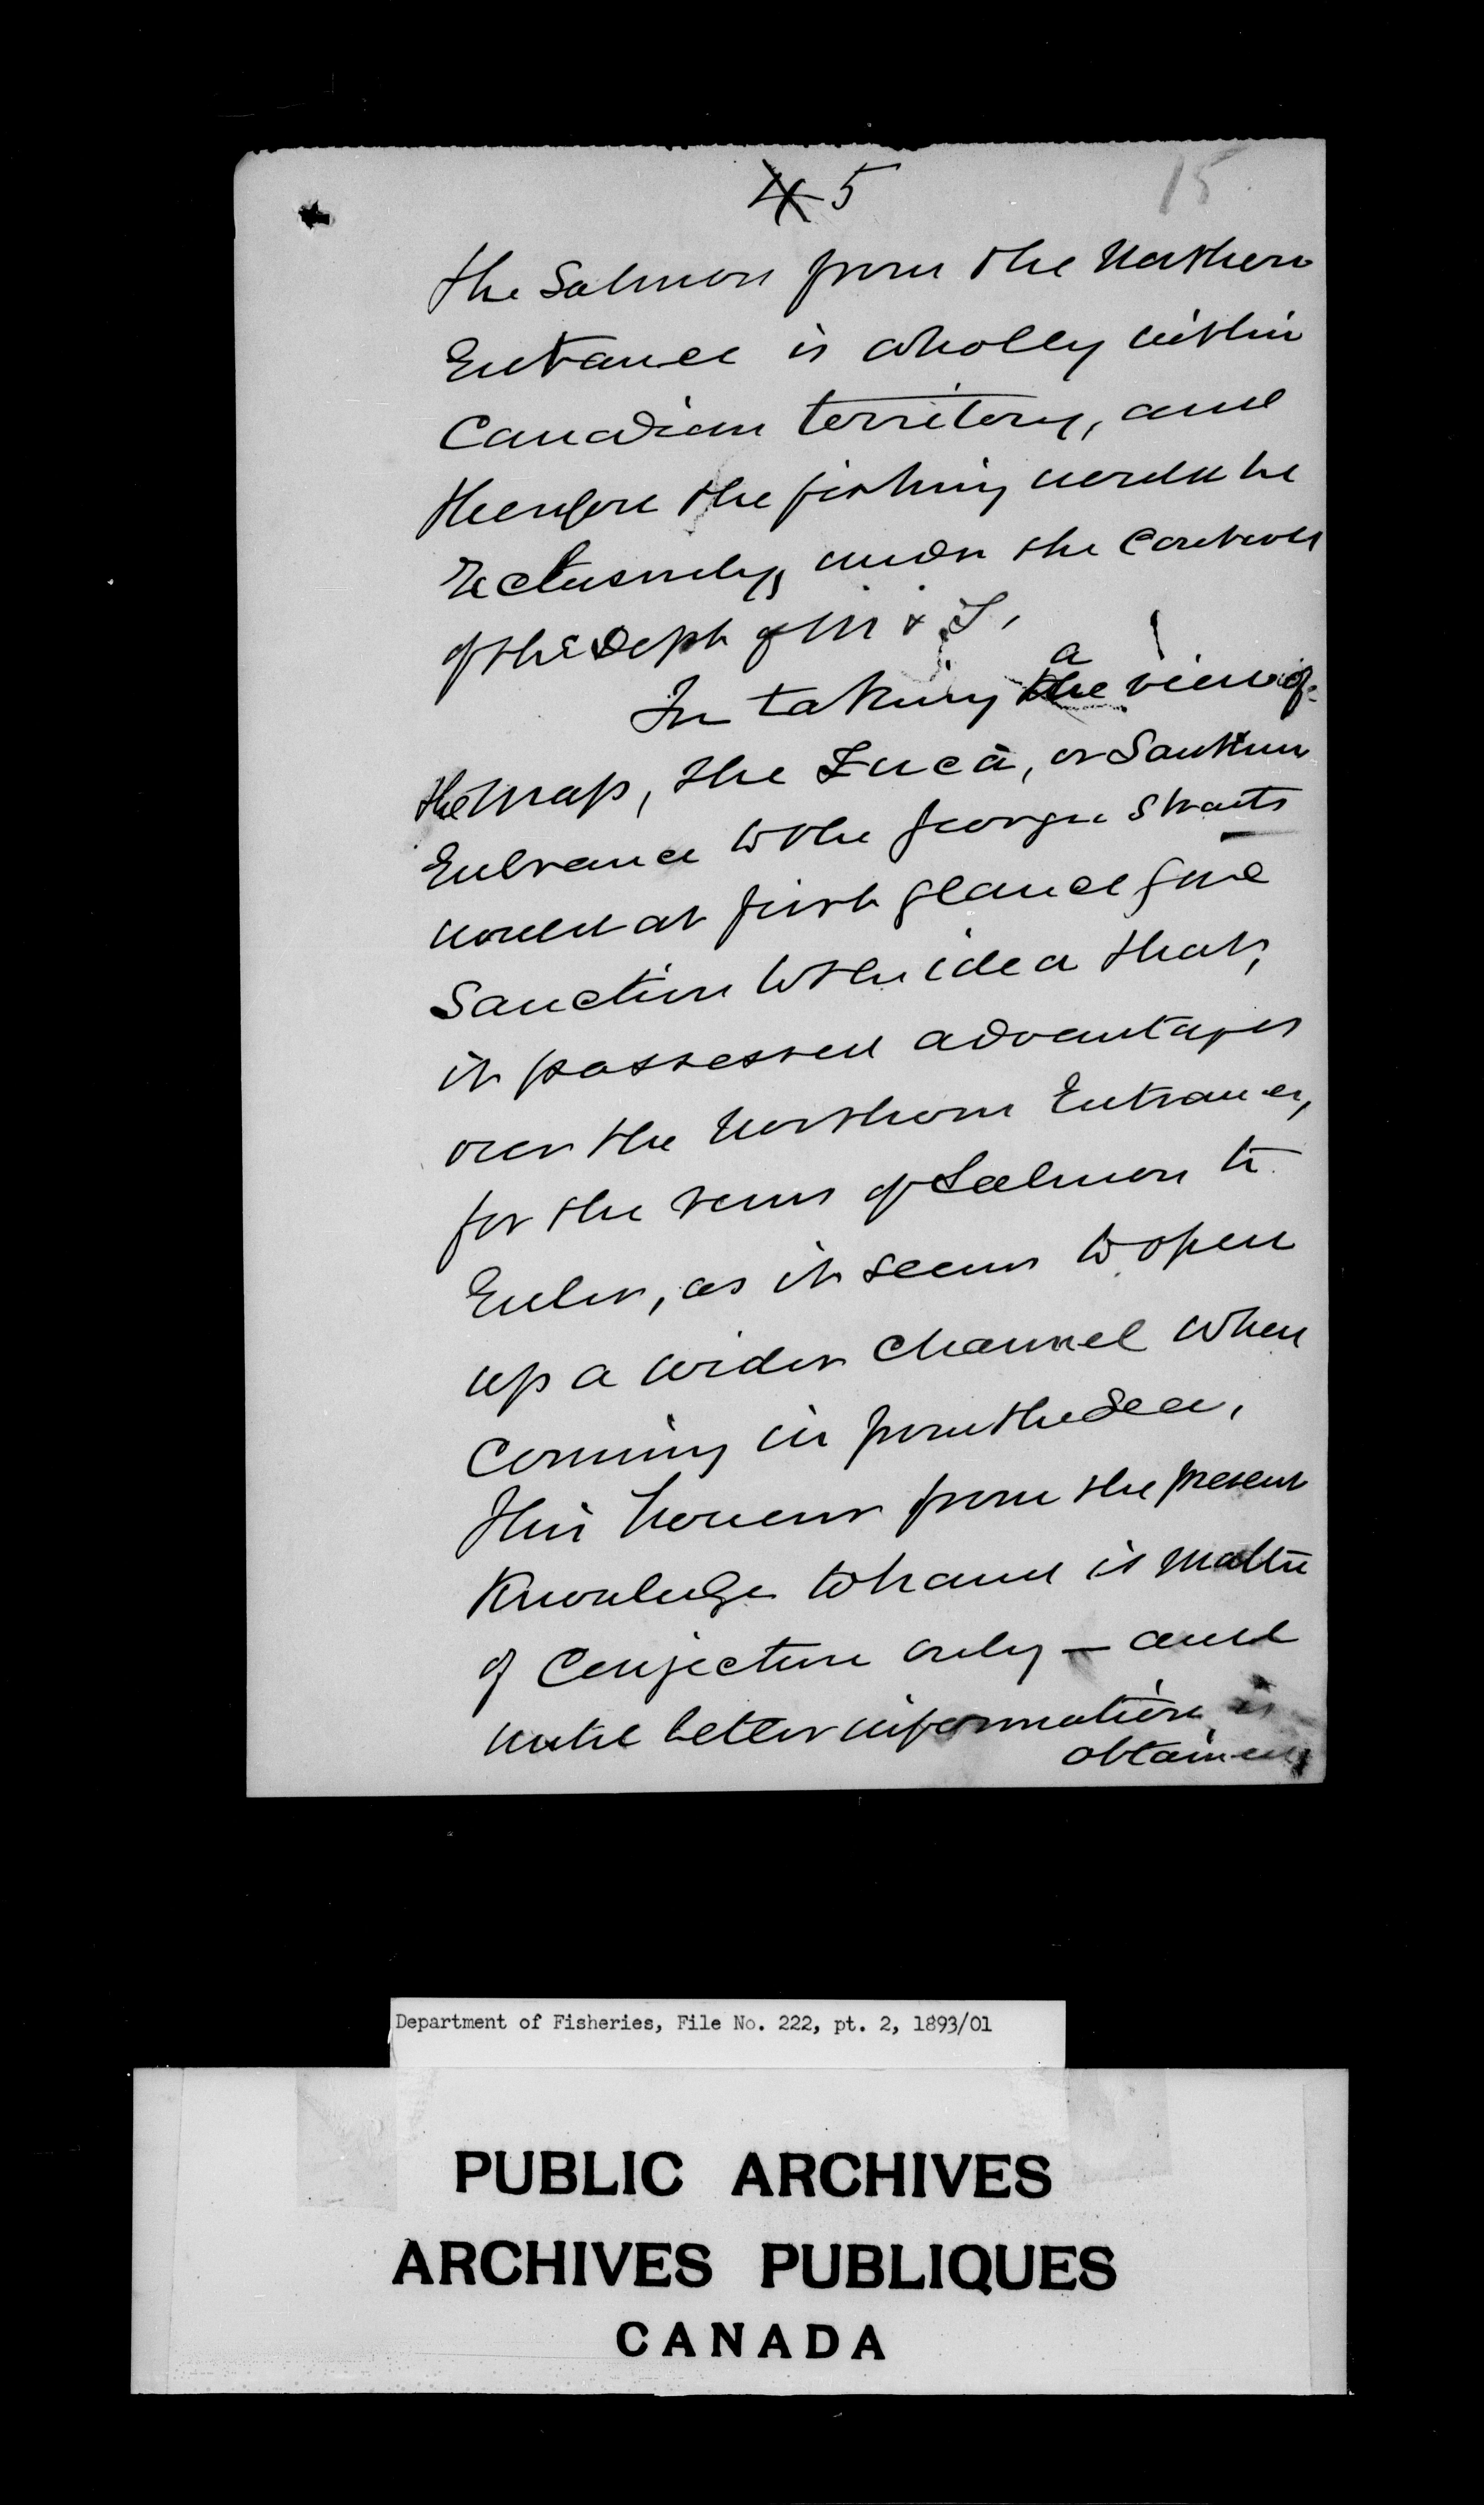 4 5
15
the Salmon from the Northern
Entrance is wholly within
Canadian territory, and
therefore the fishing would be
Exclusively, under the Control
of the Dept of M & F,
In taking the a view of
the Map, the Fuca, or Southern
Entrance to the Georgia Straits
would at first glance give
Sanction to the idea that,
it possessed advantages
over the Northern Entrance,
for the runs of Salmon to
Enter, as it seems to open
up a wider Channel when
Coming in from the Sea,
this however from the present
Knowledge to hand is matter
of Conjecture only — and
until better information is
obtained,
Department of Fisheries, File No. 222, pt. 2, 1893/01
PUBLIC ARCHIVES
ARCHIVES PUBLIQUES
CANADA